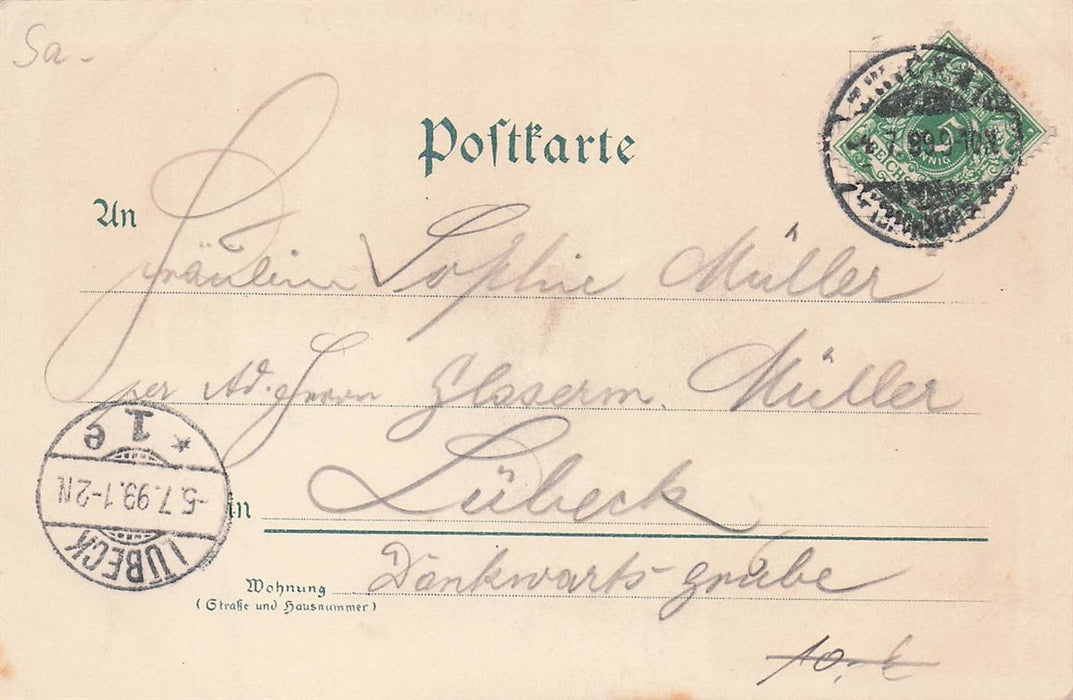 Sa-
Postkarte
An
Fräulein Sophie Müller
per Ad. Herrn Glaserm. Müller
in Lübeck
Wohnung Dankwarts-grube
(Straße und Hausnummer)
10,-
REICHSPOST
5
PFENNIG
7.99.9-10N
LÜBECK
-5.7.99.1-2N
* 1 e